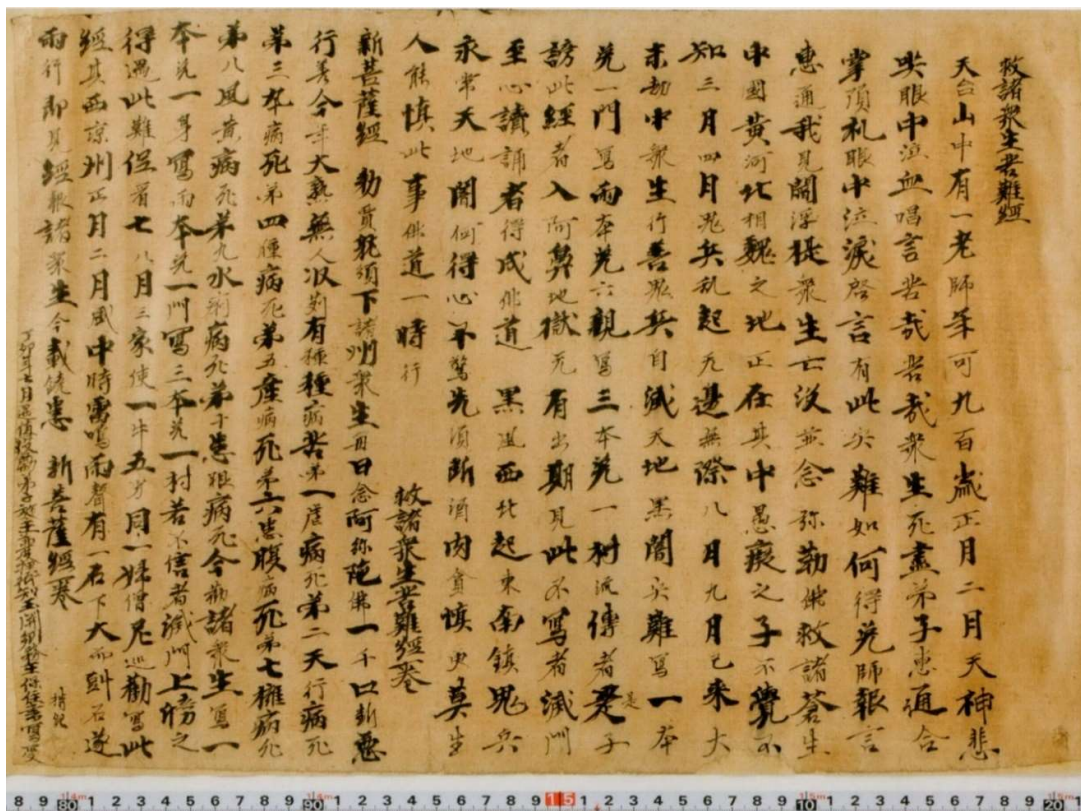 救諸衆生苦難經
天台山中有一老師年可九百歳正月二月天神悲
哭眼中泣血唱言苦哉苦哉衆生死盡弟子惠通合
掌頂礼眼中泣淚啓言有此災難如何得免師報言
惠通我見閻浮提衆生亡没並念弥勒佛救諸蒼生
中國黄河北相魏之地正在其中愚癡之子不覺不
知三月四月鬼兵乱起无邊無際八月九月已来大
末劫中衆生行善鬼兵自滅天地黒闇災難寫一本
免一門寫兩本免六親寫三本免一村流傳者是子
謗此經者入阿鼻地獄无有出期見此不寫者滅門
至心讀誦者得成佛道 黒送西北起東南鎮鬼兵
永常天地闇何得心不驚先須断酒肉貪慎更莫生
人能慎此事佛道一時行
救諸衆生苦難經卷
新菩薩經 勅賈躭頒下諸州衆生毎日念阿弥陁佛一千口断惡
行善今年大熟無人収刈有種種病苦第一虐病死第二天行病死
第三卒病死第四腫病死第五産病死第六患腹病死第七癰病死
第八風黄病死第九水痢病死第十患眼病死今勸諸衆生寫一
本免一身寫兩本免一門寫三本免一村若不信者滅門上牓之
得過此難但看七八月三家使一牛五男同一婦僧尼巡勸寫此
經其西凉州正月二月城中時雷鳴雨聲有一石下大如㪷石遂
兩行即見經報諸衆生今載饒患 新菩薩經卷
丁卯年七月